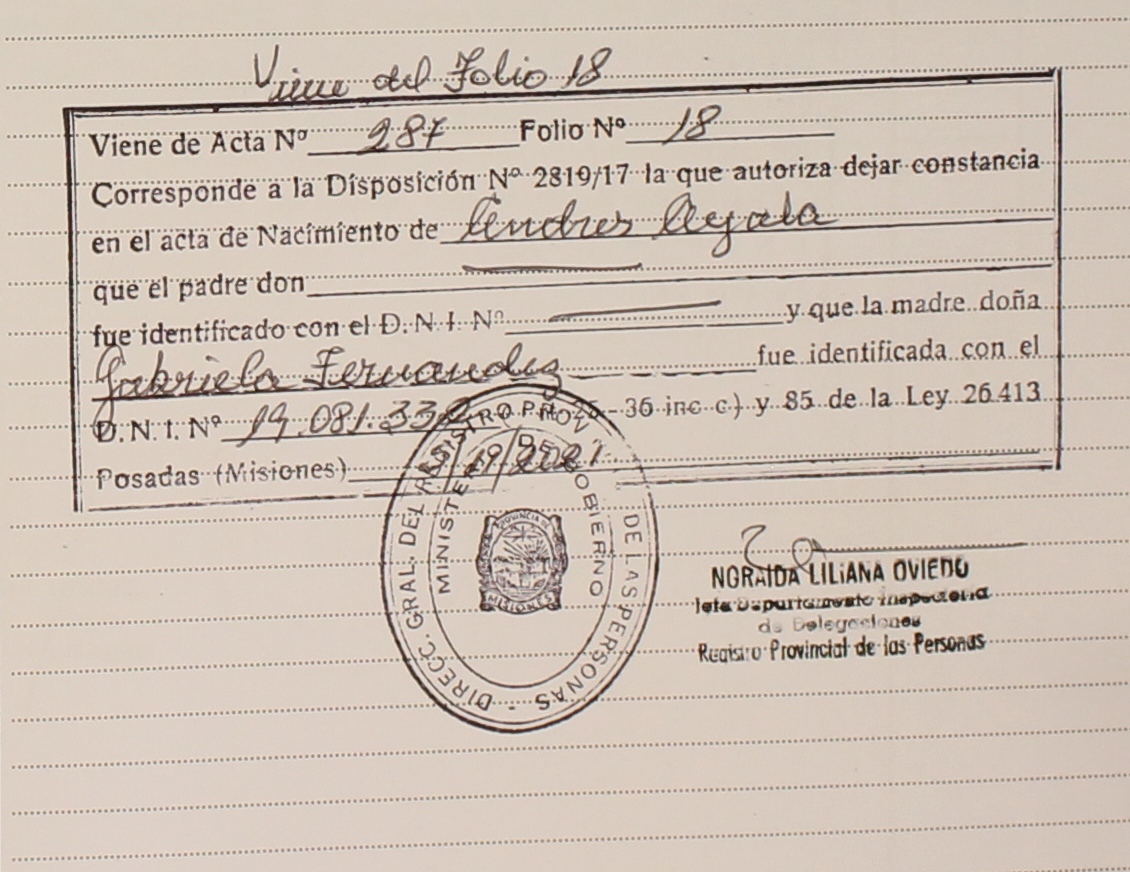 Viene del Folio 18
Viene de Acta Nº 287 Folio Nº 18
Corresponde a la Disposición Nº 2819/17 la que autoriza dejar constancia
en el acta de Nacimiento de Andres Ayala
que el padre don
fue identificado con el D.N.I. Nº y que la madre doña
Gabriela Fernandez fue identificada con el
D.N.I. Nº 19.081.33 25 - 36 inc c) y 85 de la Ley 26.413
Posadas (Misiones) /19/2021
DIRECC. GRAL. DEL REGISTRO PROV. DE LAS PERSONAS -
MINISTERIO DE GOBIERNO
PROVINCIA DE
MISIONES
NORAIDA LILIANA OVIEDO
Jefa Departamento Inspectoria
de Delegaciones
Registro Provincial de las Personas